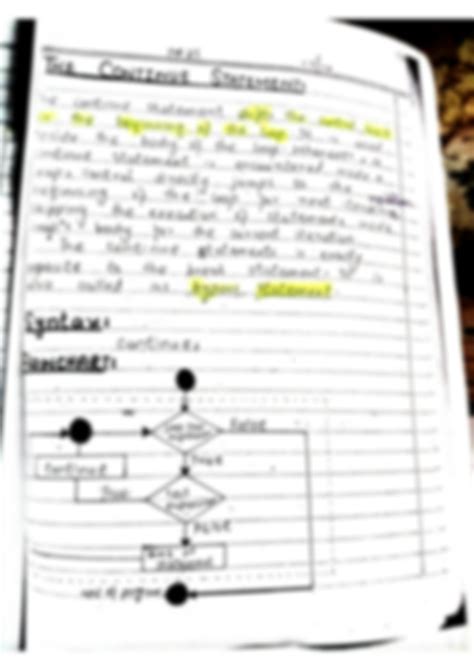 THE CONTINUE STATEMENT
continue statement shifts the control back
to the beginning of the loop. It is used
inside the body of the loop
statement is encountered inside a
loop, control directly jumps to the
beginning of the loop for next iteration
skipping the execution of statements inside
loop's body for the current iteration.
The continue statements is exactly
opposite to the break statement. It is
also called as bypass statement
Syntax:
continue;
FLOWCHART:
False
True
continue
True
Test
False
statement
end of program